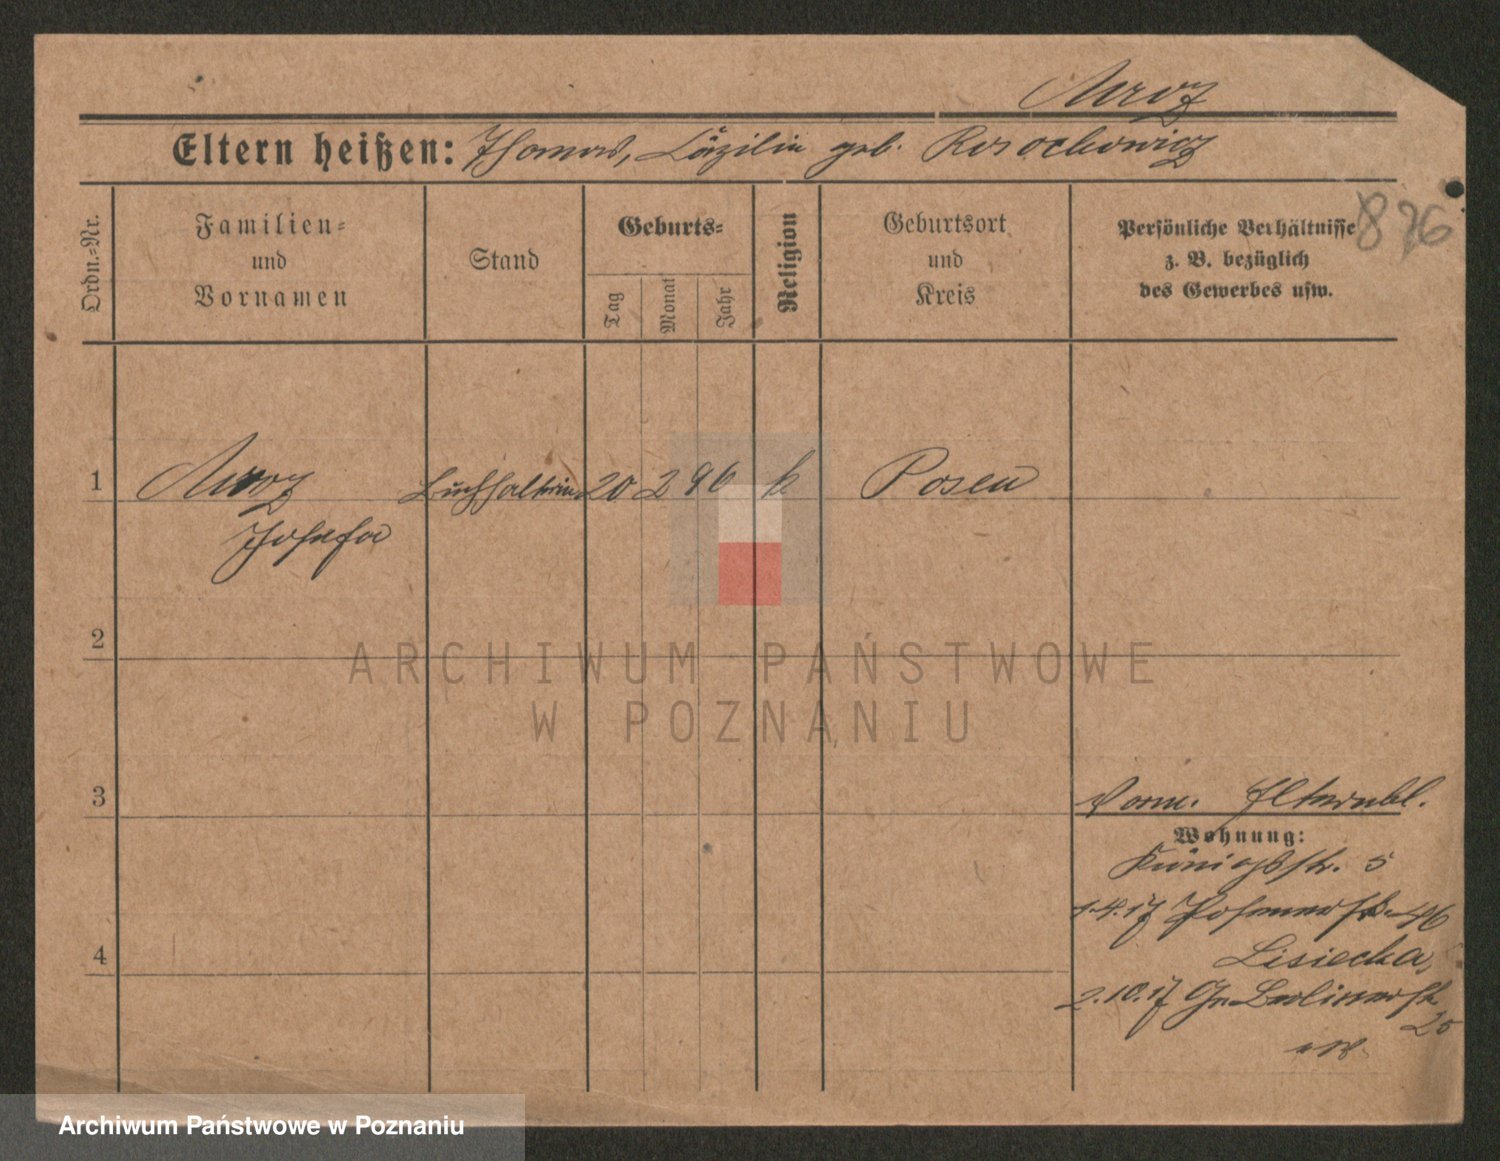 Mroz
Eltern heißen: Thomas, Cäzilie geb. Rosochowicz
876
Ordn.-Nr.
Familien-
und
Vornamen
Stand
Geburts-
Tag
Monat
Jahr
Religion
Geburtsort
und
Kreis
Persönliche Verhältnisse
z. B. bezüglich
des Gewerbes usw.
1
Mroz
Josefa
Buchhalterin
20
2
96
k
Posen
2
3
4
Vorm. Elternbl.
Wohnung:
Königstr. 5
1.4.17 Posenerstr. 46
Lisiecka,
2.10.17 Gr. Berlinerstr
25
ARCHIWUM PAŃSTWOWE
W POZNANIU
Archiwum Państwowe w Poznaniu